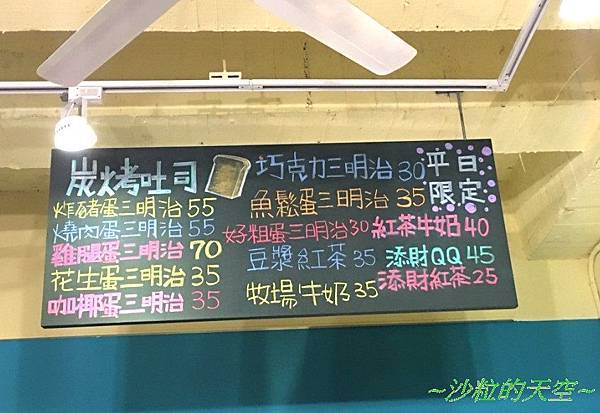 炭烤吐司
炸豬蛋三明治 55
燒肉蛋三明治 55
雞腿蛋三明治 70
花生蛋三明治 35
咖椰蛋三明治 35
巧克力三明治 30
魚鬆蛋三明治 35
好粗蛋三明治 30
豆漿紅茶 35
牧場牛奶 35
平日
限定
紅茶牛奶 40
添財QQ 45
添財紅茶 25
~沙粒的天空~